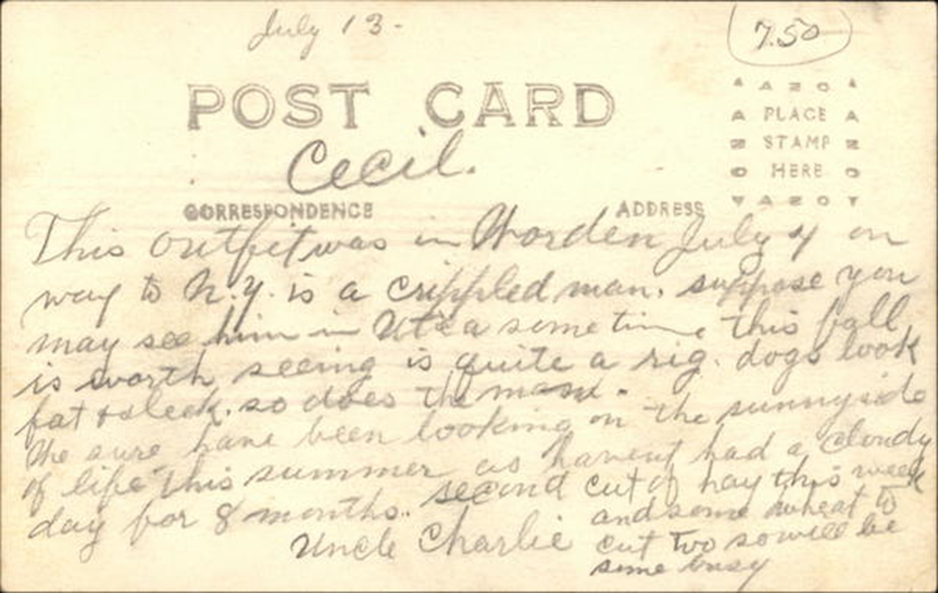 July 13-
7.50
POST CARD
AZO
PLACE
STAMP
HERE
AZO
Cecil.
CORRESPONDENCE
ADDRESS
This outfit was in Worden July 4 on
way to N.Y. is a crippled man. suppose you
may see him in Utica sometime this fall
is worth seeing is quite a rig. dogs look
fat & sleek. so does the man.
We sure have been looking on the sunnyside
of life this summer as havent had a cloudy
day for 8 months. second cut of hay this week
and some wheat to
cut too so will be
some busy
Uncle Charlie